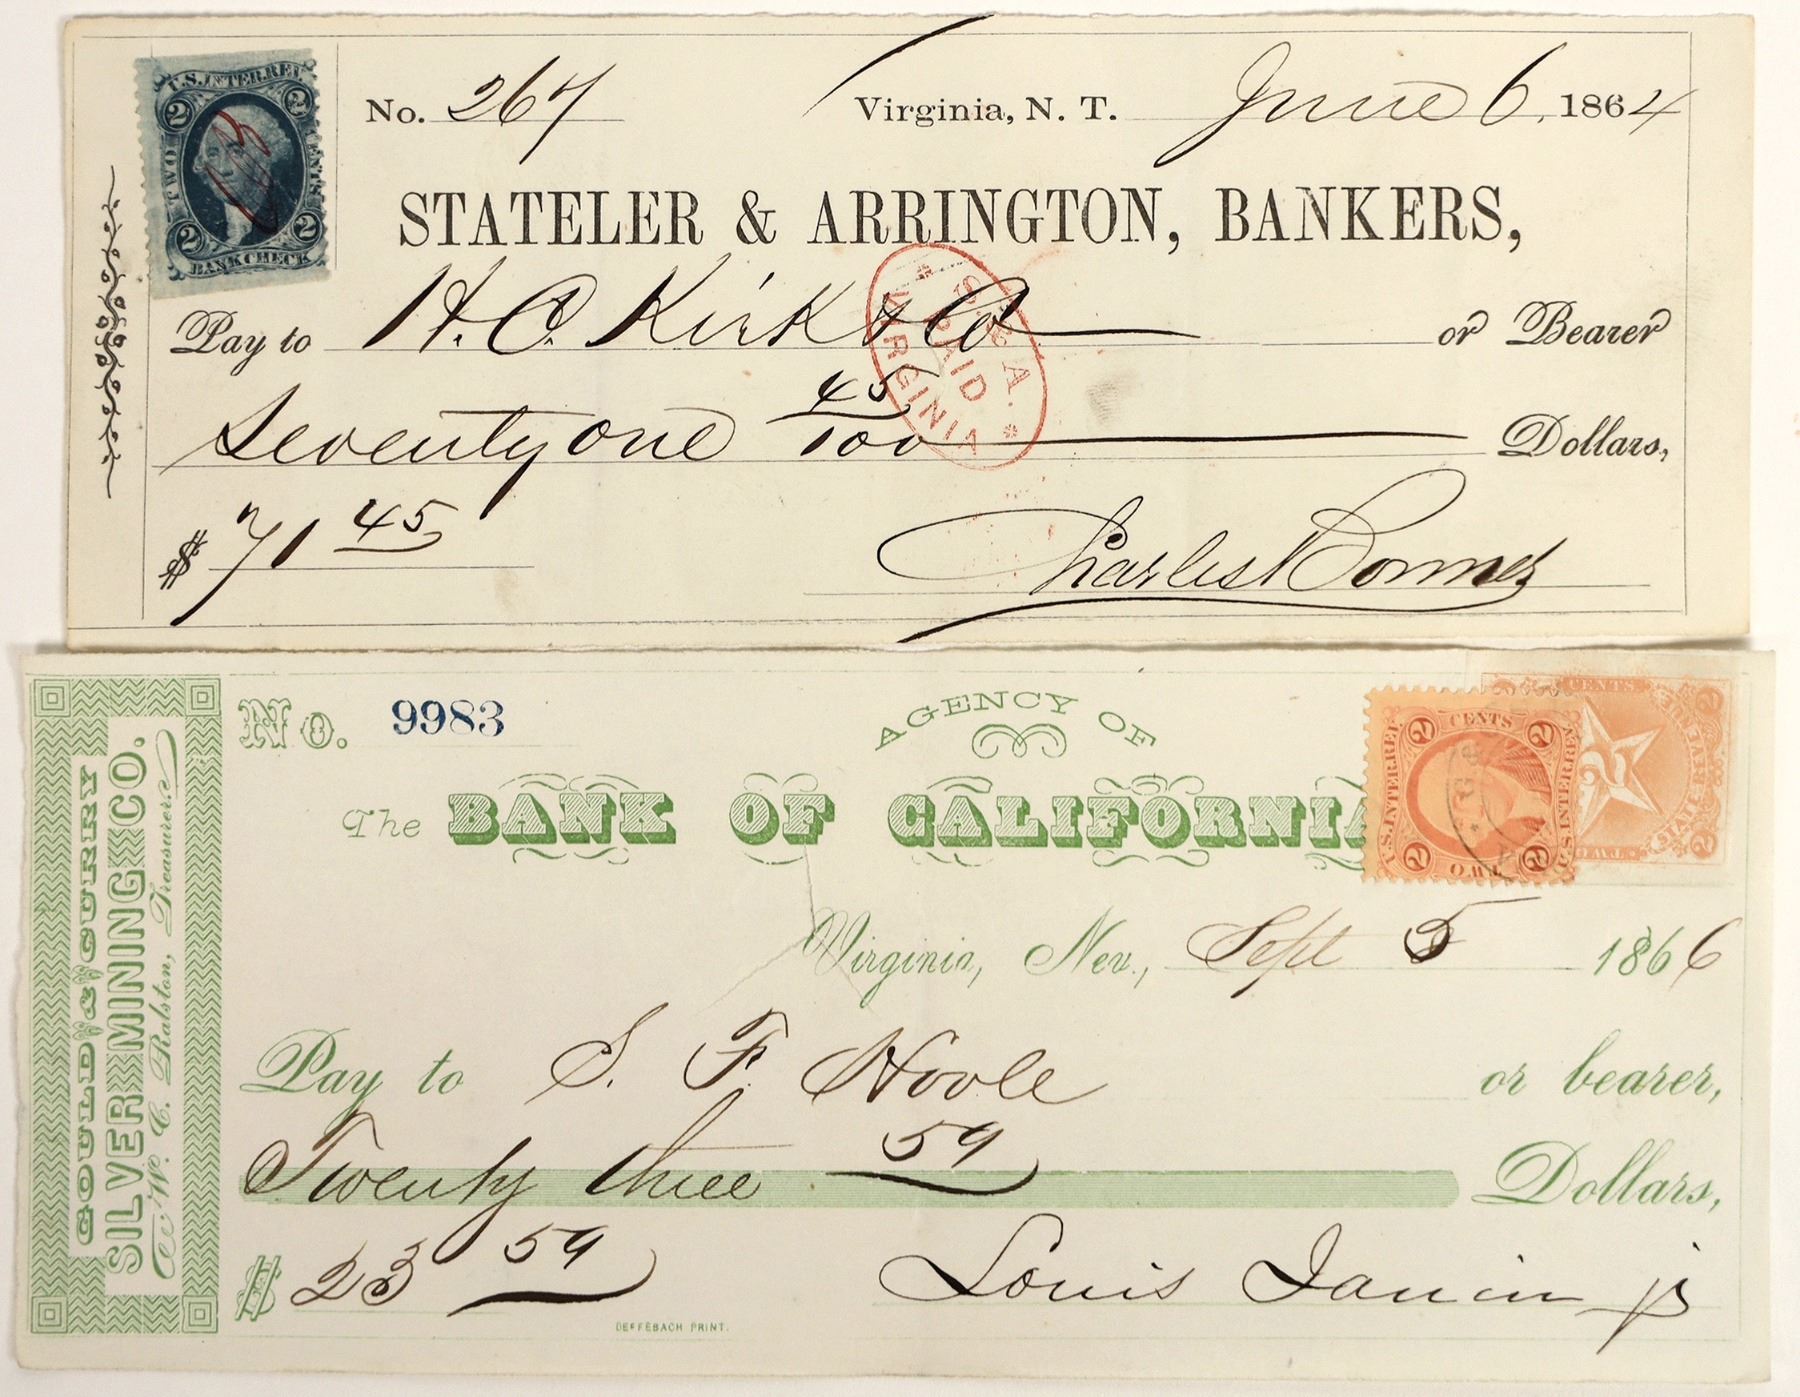 U.S. INTER. REV.
2 2
TWO CENTS
2 2
BANK CHECK
No. 267 Virginia, N. T. June 6, 1864
STATELER & ARRINGTON, BANKERS,
Pay to H. C. Kirk & Co or Bearer
S. & A.
PAID
VIRGINIA
Seventy one 45/100 Dollars,
$ 71 45 Charles Bonner
GOULD & CURRY
SILVER MINING CO.
W. C. Ralston, Treasurer.
No. 9983
AGENCY OF
The BANK OF CALIFORNIA
CENTS
2 2
U.S. INTER. REV.
2 2
TWO
CENTS
2
Virginia, Nev., Sept 5 1866
Pay to S. F. Hoole or bearer,
Twenty three 59 Dollars,
$ 23 59 Louis Janin jr
DEFFEBACH PRINT.